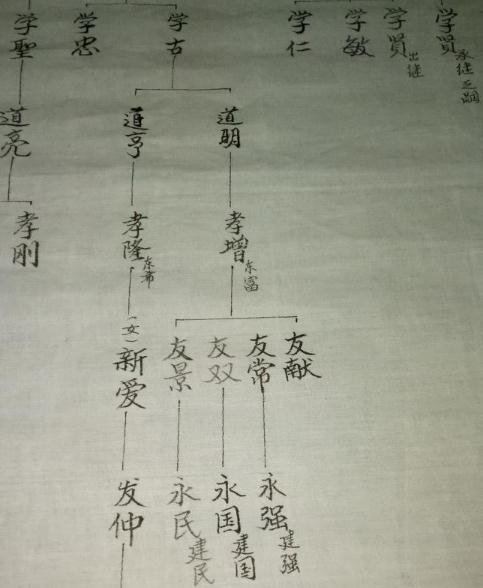 学聖
学忠
学古
学仁
学敏
学贤
出继
学贤
承继之嗣
道亮
道亨
道明
孝刚
孝隆
东希
孝增
东富
（女）
新爱
友景
友双
友常
友献
发仲
永民
建民
永国
建国
永强
建强